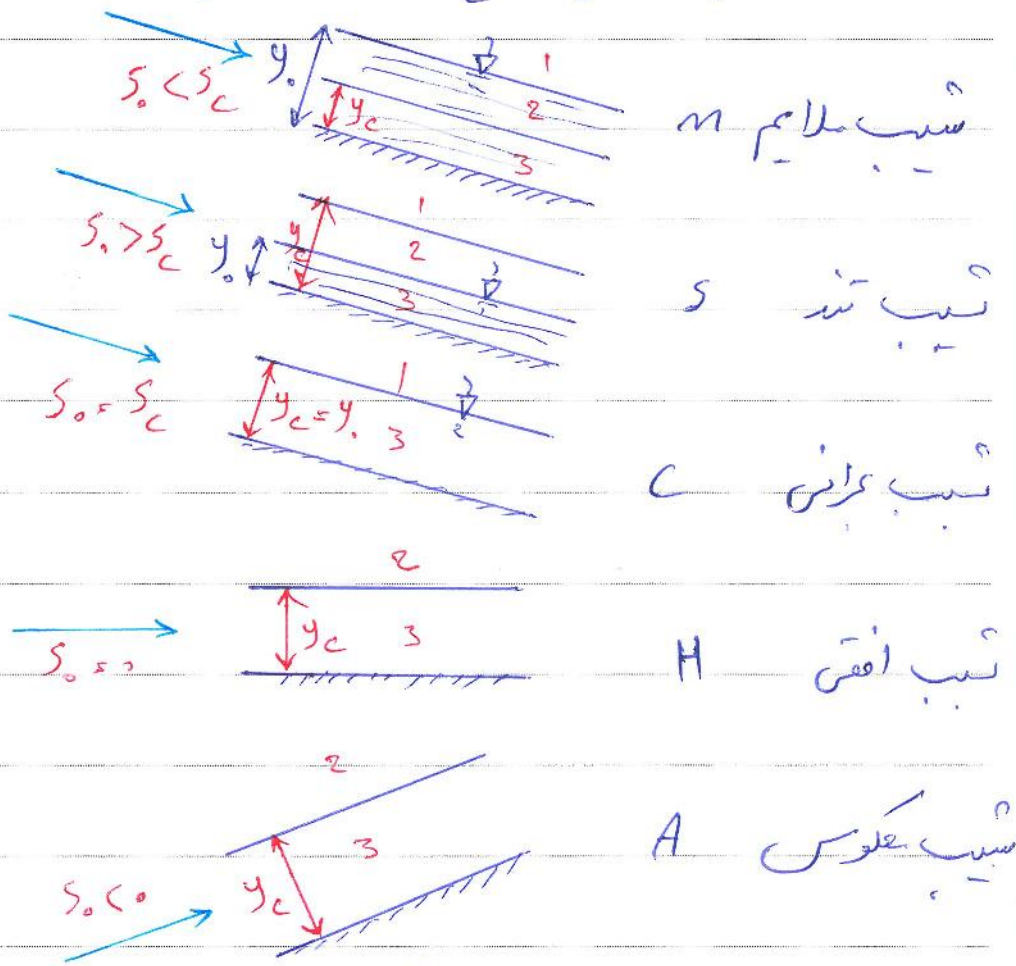 1
S₀ < S_c y₀ y_c 2 شیب ملایم M
3
1
S₀ > S_c y₀ y_c 2 شیب تند S
3
1
S₀ = S_c y_c = y₀ 2 شیب بحرانی C
3
2
S₀ = 0 y_c 3 شیب افقی H
2
S₀ < 0 y_c 3 شیب معکوس A